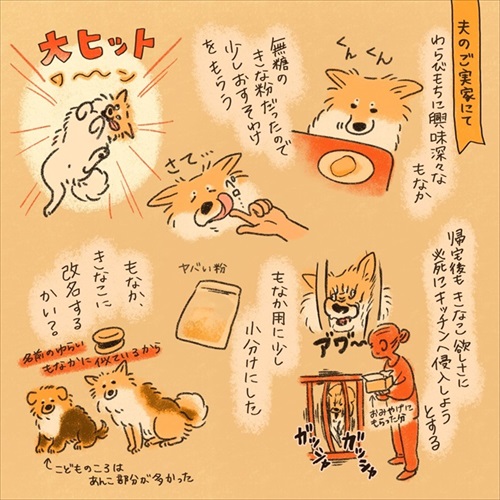 夫のご実家にて
わらびもちに興味深々な
もなか
くんくん
無糖の
きな粉だったので
少しおすそわけ
をもらう
さてご
ペロッ
大ヒット
ワ〜〜ン
帰宅後もきなこ欲しさに
必死にキッチンへ侵入しよう
とする
アワ〜〜
おみやげに
もらった分
ガッシャ
ガッシャ
もなか用に少し
小分けにした
ヤバい粉
もなか、
きなこに
改名する
かい?
名前のゆらい
もなかに似ているから
こどものころは
あんこ部分が多かった